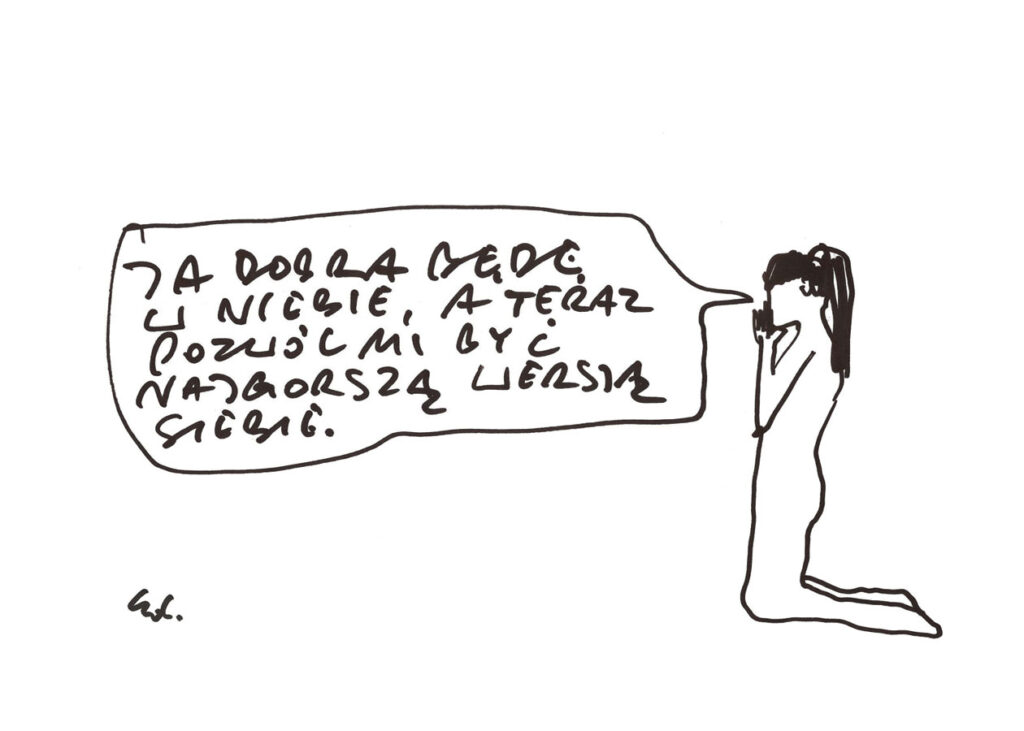 JA DOBRA BĘDĘ
W NIEBIE, A TERAZ
POZWÓL MI BYĆ
NAJGORSZĄ WERSJĄ
SIEBIE.